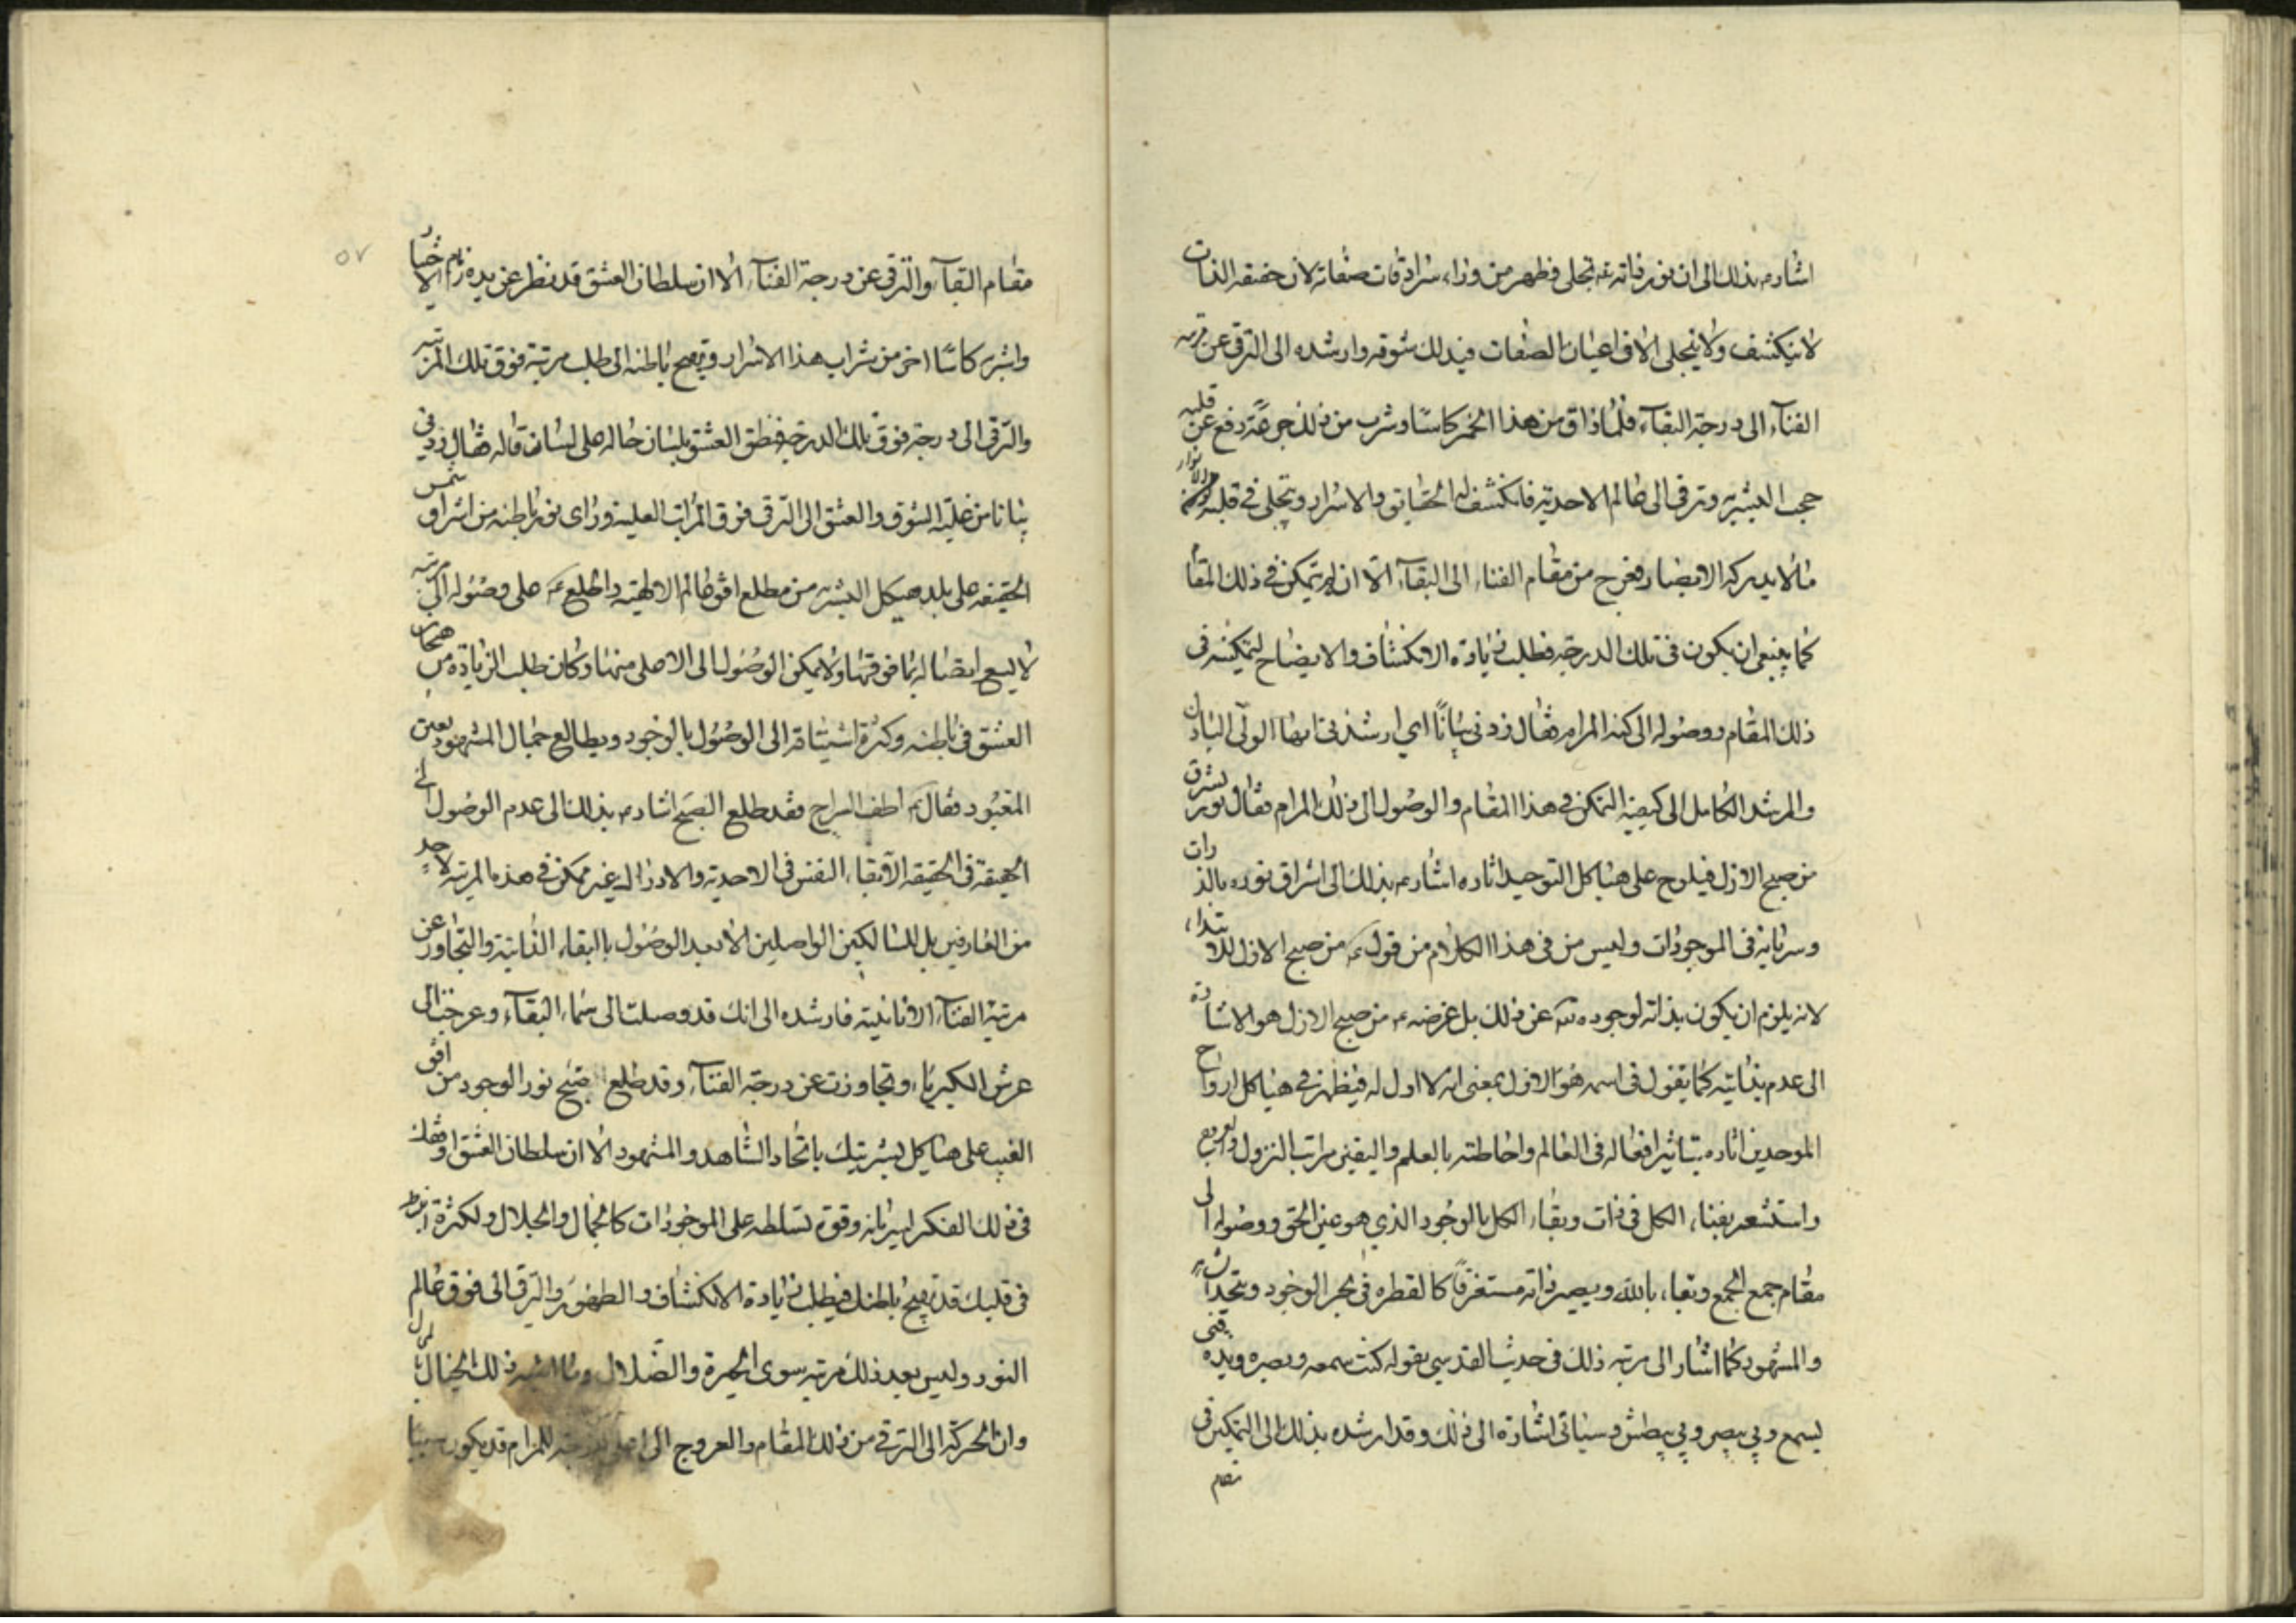 اشار ع بذلك الى ان نور ذاته تم تجلى فظهر من وراء سرادقات صفاته لان حقيقه الذات
لا ينكشف ولا يتجلى الا فى اعيان الصفات فيذلك شوقه وارشده الى الترقى عن مرتبه
الفناء الى درجة البقاء فلما ذاق من هذا الخمر كاسا وشرب من ذلك جرعة رفع عن قلبه
حجب البشيريه وترقى الى عالم الاحديه فانكشف له الحقايق والاسرار وتجلى فى قلبه من الانوار
ما لا يدركه الابصار فخرج من مقام الفناء الى البقاء الا انه لم يتمكن فى ذلك المقا
كما ينبغى ان يكون فى تلك الدرجة فطلب زيادة الانكشاف والايضاح ليتمكنه فى
ذلك المقام ووصوله الى كنه المرام فقال زدنى بيانا اي ارشدنى ايها الولى البادل
والمرشد الكامل الى كيفية التمكن فى هذا المقام والوصول الى ذلك المرام فقال نور يشرق
من صبح الازل فيلوح على هياكل التوحيد اثاره اشار ع بذلك الى اشراق نوره بالذ رات
وسريانه فى الموجودات وليس من فى هذا الكلام من قوله ع من صبح الازل للا بتداء
لانه يلزم ان يكون بذاته لوجوده تعه عن ذلك بل غرضه ع من صبح الازل هو الاشا رة
الى عدم بذايته كما يقول فى اسمه هو الاول بمعنى انه لا اول له فيظهر فى هياكل ارواح
الموحدين اثاره بتاثير افعاله فى العالم واحاطته بالعلم واليقين مراتب النزول والعروج
واستشعر بفناء الكل فى ذات وبقاء الكل بالوجود الذي هو عين الحق ووصوله الى
مقام جمع الجمع وبقاء بالله ويصير ذاته مستغرقا كالقطره فى بحر الوجود ويتحد
والمشهود كما اشار الى مرتبة ذلك فى حديث القدسي بقوله كنت سمعه وبصره ويده فبى
يسمع وبي يبصر وبي يبطش وسياتى اشارة الى ذلك وقد ارشده بذلك الى التمكين فى
مقام
٥٧
مقام البقاء والترقى عن درجة الفناء الا ان سلطان العشق قد نظر عن يده زمام الاختيار
واشربه كاسا اخر من شراب هذا الاسرار وتهيج باطنه الى طلب مرتبة فوق تلك المرتبه
والترقى الى درجة فوق تلك الدرجة فنطق العشق بلسان حاله على لسان قاله فقال زدنى
بيانا من غلبة الشوق والعشق الى الترقى فوق المراتب العليه وراى نور باطنه من اشراق شمس
الحقيقه على بلد هيكل البشريه من مطلع افق عالم الالهيه واطلع ع على وصوله الى مرتبه
لا يسع ايصاله بما فوقها ولا يمكن الوصول الى الاعلى منها وكان طلب الزيادة من هيجان
العشق فى باطنه وكثرة اشتياقه الى الوصول بالوجود ويطالع جمال المشهود بعين
المعبود فقال ع اطف السراج فقد طلع الصبح اشار ع بذلك الى عدم الوصول الى
الحقيقة فى الحقيقه الا بقاء النفس فى الاحديه والا دراك غير ممكن فى هذه المرتبه لاحد
من العارفين بل للسالكين الواصلين الا بعد الوصول باابقاء الذاتية والتجاوز عن
مرتبة الفناء الانانيته فارشده الى انك قد وصلت الى سماء البقاء وعرجت الى
عرش الكبرياء وتجاوزت عن درجة الفناء وقد طلع صبح نور الوجود من افق
الغيب على هياكل بشريتك باتحاد الشاهد والمشهود الا ان سلطان العشق اوقعك
فى ذلك الفكر لسريانه وقوة تسلطه على الموجودات كالجمال والجلال ولكثرة
فى قلبك قد تهيج باطنك فيطلب زيادة الانكشاف والظهور والترقى الى فوق عالم
النور وليس بعد ذلك مرتبه سوى الحيرة والضلال وما ذلك الخيال
وان الحركة الى الترقى من ذلك المقام والعروج الى المرام قد يكون سببا